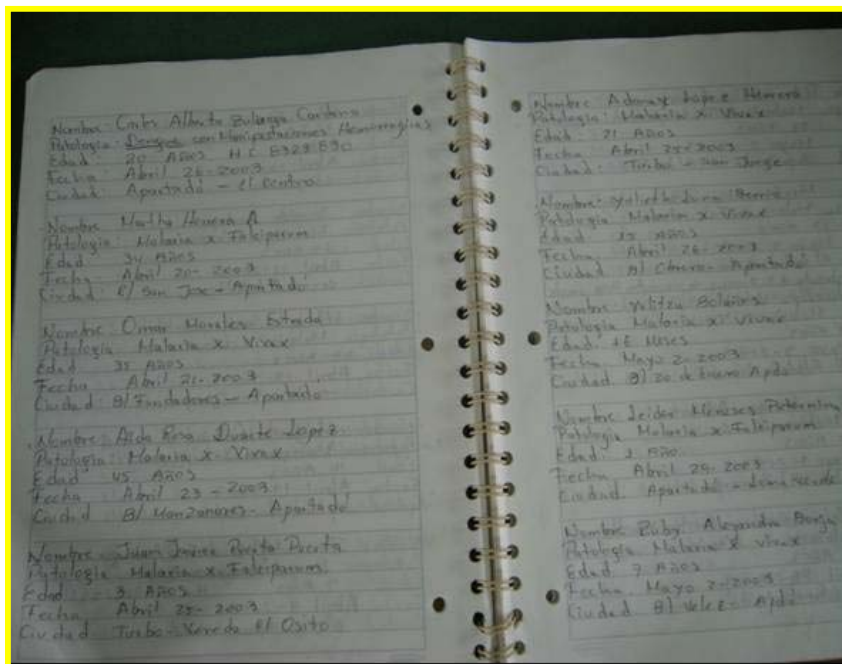 Nombre: Carlos Alberto Zuluaga Cardona
Patologia: Dengue con Manifestaciones Hemorragicas
Edad: 20 Años H.C 8323890
Fecha: Abril 26-2003
Ciudad: Apartadó - El Centro
Nombre Martha Herrera A
Patologia: Malaria x Falciparum
Edad 34 Años
Fecha Abril 20-2003
Ciudad: B/ San Jose - Apartado
Nombre Omar Morales Estrada
Patologia Malaria x Vivax
Edad 35 Años
Fecha Abril 21-2003
Ciudad: B/ Fundadores - Apartado
Nombre: Aida Rosa Duarte Lopez
Patologia: Malaria x Vivax
Edad 45 Años
Fecha Abril 23-2003
Ciudad B/ Manzanares - Apartadó
Nombre Juan Puerta
Patologia Malaria x Falciparum
Edad 3 Años
Fecha Abril 25-2003
Ciudad Turbo - Vereda El Osito
Nombre Lopez Herrera
Patologia: Malaria x Vivax
Edad: 21 Años
Fecha Abril 25-2003
Ciudad: Turbo - San Jorge
Nombre:
Patologia Malaria x Vivax
Edad Años
Fecha Abril 26-2003
Ciudad B/ Obrero - Apartadó
Nombre Bolaños
Patologia Malaria x Vivax
Edad: Meses
Fecha Mayo 2-2003
Ciudad B/ 20 de Enero Apdó
Nombre Leider Meneses
Patologia Malaria x Falciparum
Edad Año
Fecha Abril 29-2003
Ciudad Apartadó -
Nombre Ruby Alejandra Borja
Patologia Malaria x vivax
Edad 7 Años
Fecha Mayo 2-2003
Ciudad B/ Velez - Apdó